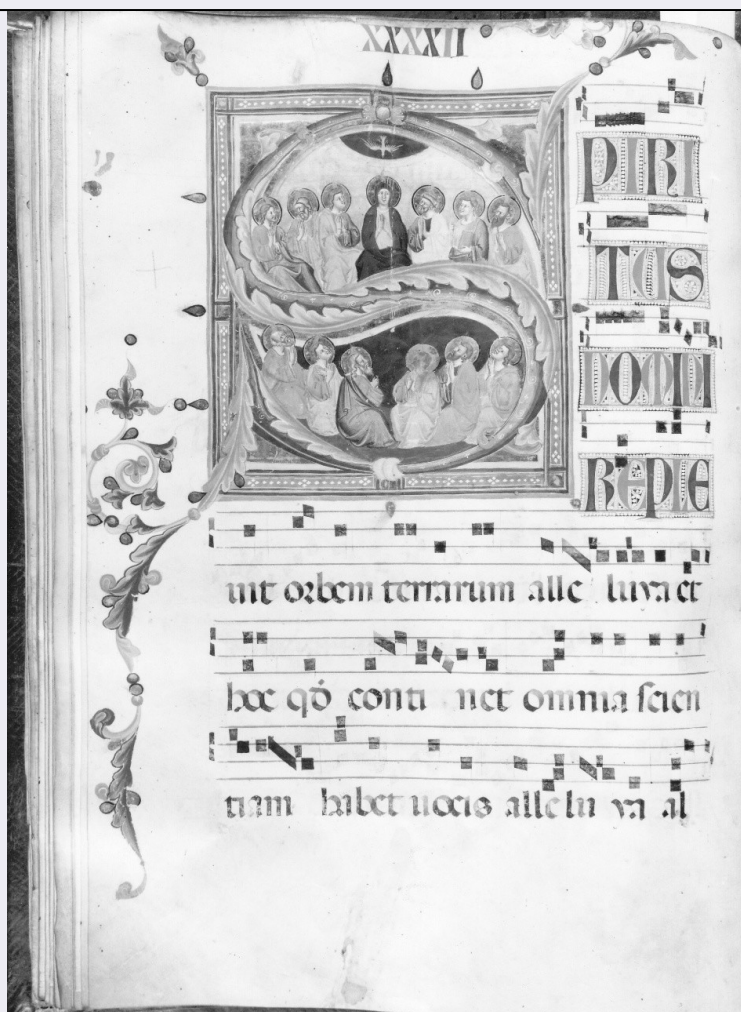 XXXXII
PIRI
TUS
DOMINI
REPLE
uit orbem terrarum alle luya et
hoc qđ conti net omnia scien
tiam habet uocis allelu ya al